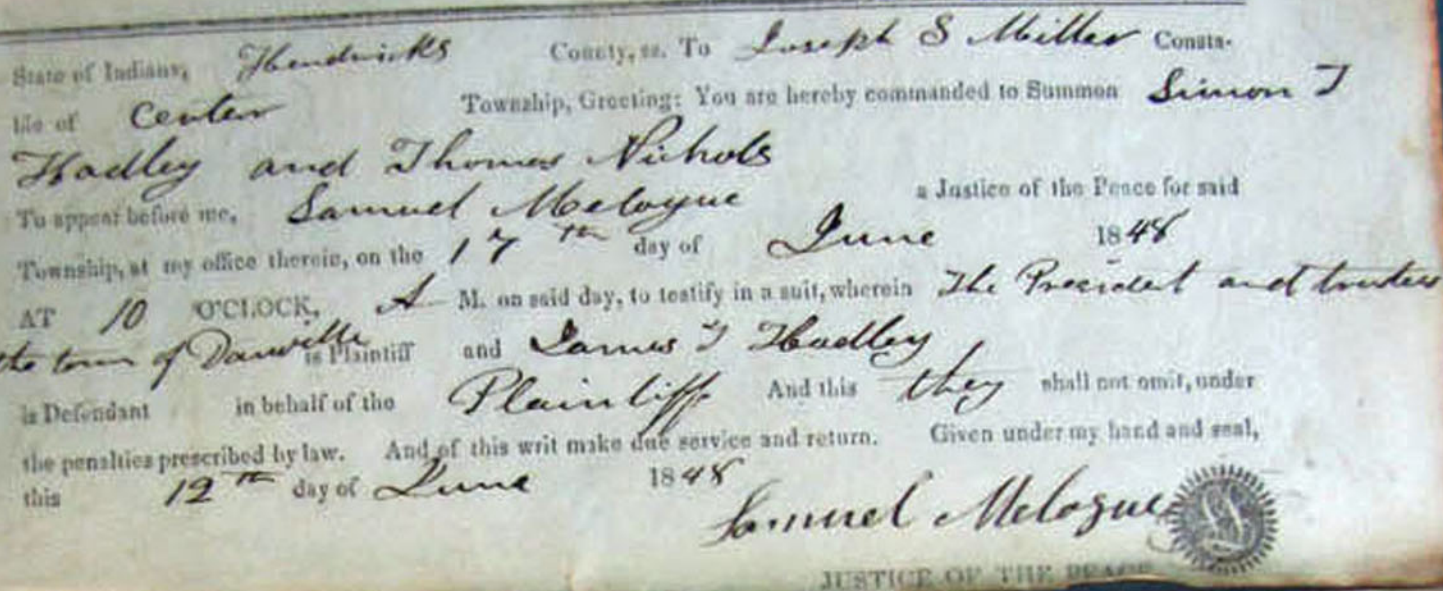 State of Indiana, Hendricks County, ss. To Joseph S Miller Consta-
ble of Center Township, Greeting: You are hereby commanded to Summon Simon T
Hadley and Thomas Nichols
To appear before me, Samuel Melogue a Justice of the Peace for said
Township, at my office therein, on the 17th day of June 1848
AT 10 O'CLOCK, A M. on said day, to testify in a suit, wherein The President and trustees
the town of Danville is Plaintiff and James T Hadley
is Defendant in behalf of the Plaintiff And this they shall not omit, under
the penalties prescribed by law. And of this writ make due service and return. Given under my hand and seal,
this 12th day of June 1848
Samuel Melogue
JUSTICE OF THE PEACE